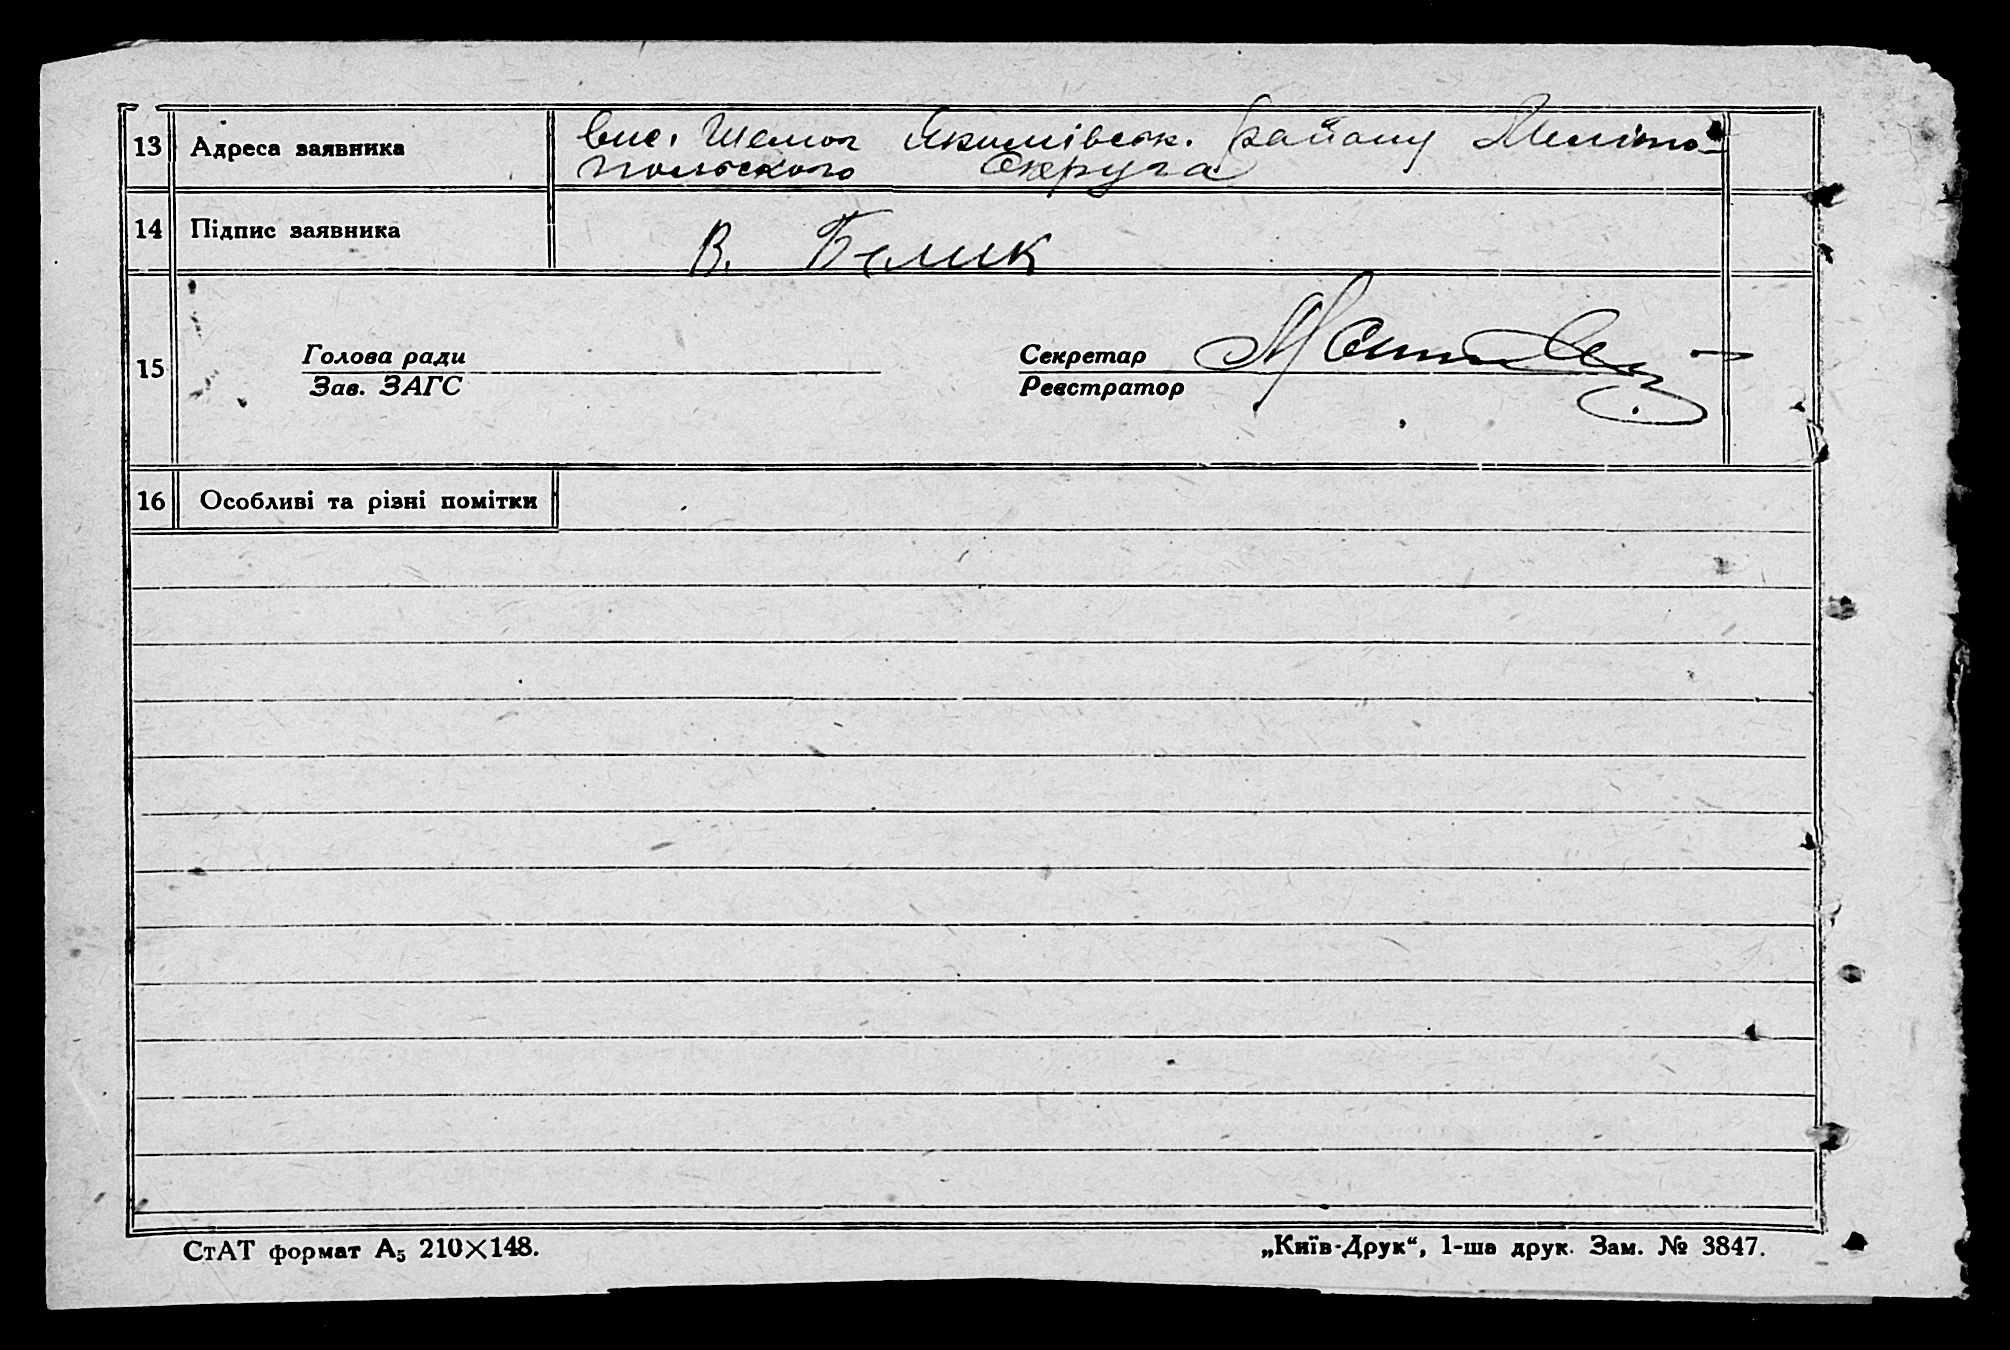 13 Адреса заявника
вис. Шелюг Якимівськ. району Меліто-
польского Округа
14 Підпис заявника
В. Белик
15
Голова ради
Зав. ЗАГС
Секретар
Реєстратор
16 Особливі та різні помітки
СтАТ формат А5 210×148.
„Київ-Друк“, 1-ша друк. Зам. № 3847.